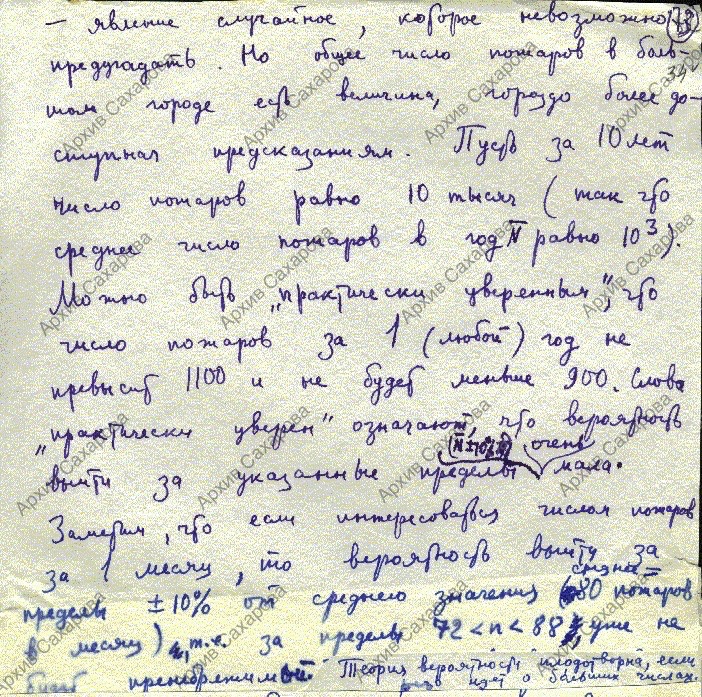 — явление случайное, которое невозможно
предугадать. Но общее число пожаров в боль-
шом городе есть величина, гораздо более до-
ступная предсказаниям. Пусть за 10 лет
число пожаров равно 10 тысяч (так что
среднее число пожаров в год N̅ равно 10³).
Можно быть „практически уверенным", что
число пожаров за 1 (любой) год не
превысит 1100 и не будет меньше 900. Слова
„практически уверен" означают, что вероятность
выйти за указанные пределы (N̅±10%N̅) очень мала.
Заметим, что если интересоваться числом пожаров
за 1 месяц, то вероятность выйти за
пределы ±10% от среднего значения (80 пожаров
в месяц), т.е. за пределы 72 < n < 88, уже не
будет пренебрежимый Теория вероятности плодотворна, если
речь идет о больших числах.
Архив Сахарова